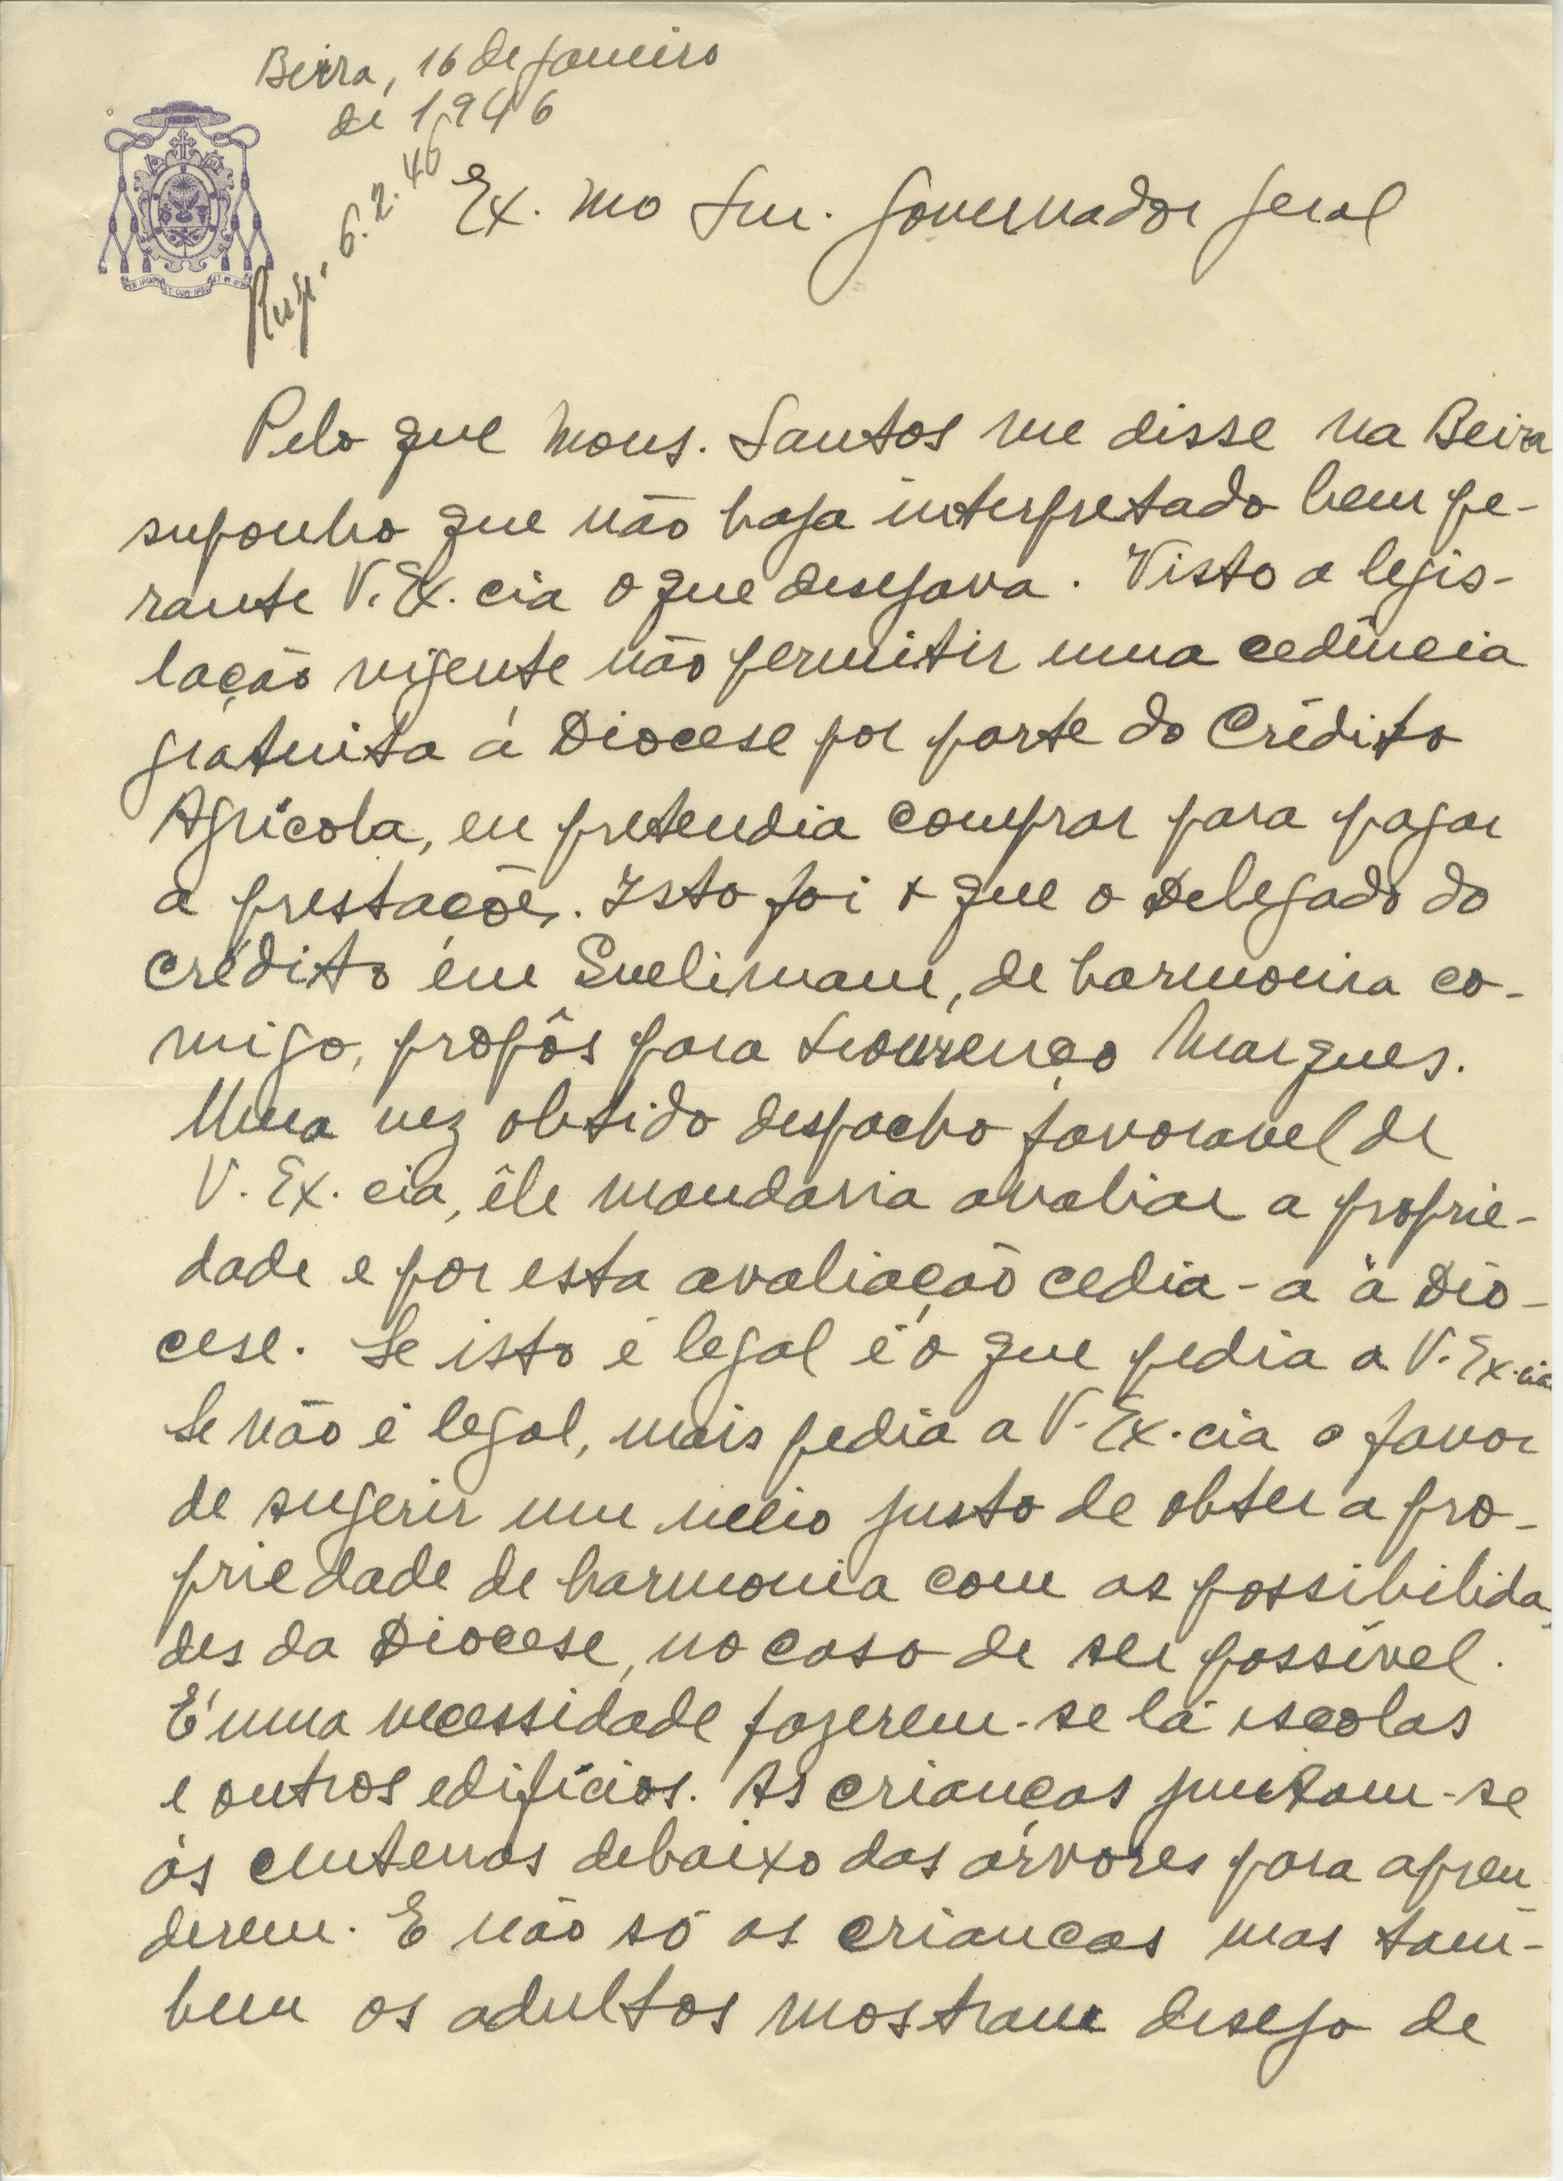 Beira, 16 de Janeiro
de 1946
Resp. 6.2.46
Ex. mo Snr. Governador Geral
Pelo que Mons. Santos me disse na Beira
suponho que não haja interpretado bem pe-
rante V. Ex. cia o que desejava. Visto a legis-
lação vigente não permitir uma cedência
gratuita á Diocese por parte do Crédito
Agrícola, eu pretendia comprar para pagar
a prestações. Isto foi o que o Delegado do
Crédito em Quelimane, de harmonia co-
migo, propôs para Lourenço Marques.
Uma vez obtido despacho favoravel de
V. Ex. cia, êle mandaria avaliar a proprie-
dade e por esta avaliação cedia-a à Dio-
cese. Se isto é legal é o que pedia a V. Ex. cia
Se não é legal, mais pedia a V. Ex. cia o favor
de sugerir um meio justo de obter a pro-
priedade de harmonia com as possibilida-
des da Diocese, no caso de ser possível.
É uma necessidade fazerem-se lá escolas
e outros edifícios. As crianças juntam-se
ás centenas debaixo das árvores para apren
derem. E não só as crianças mas tam-
bem os adultos mostram desejo de